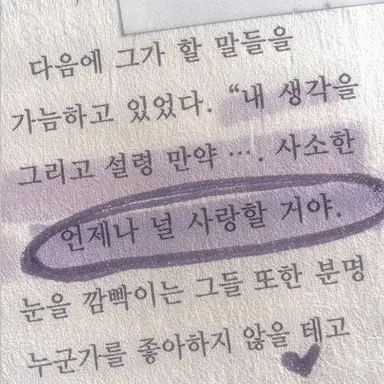 다음에 그가 할 말들을
가늠하고 있었다. “내 생각을
그리고 설령 만약 …. 사소한
언제나 널 사랑할 거야.
눈을 깜빡이는 그들 또한 분명
누군가를 좋아하지 않을 테고